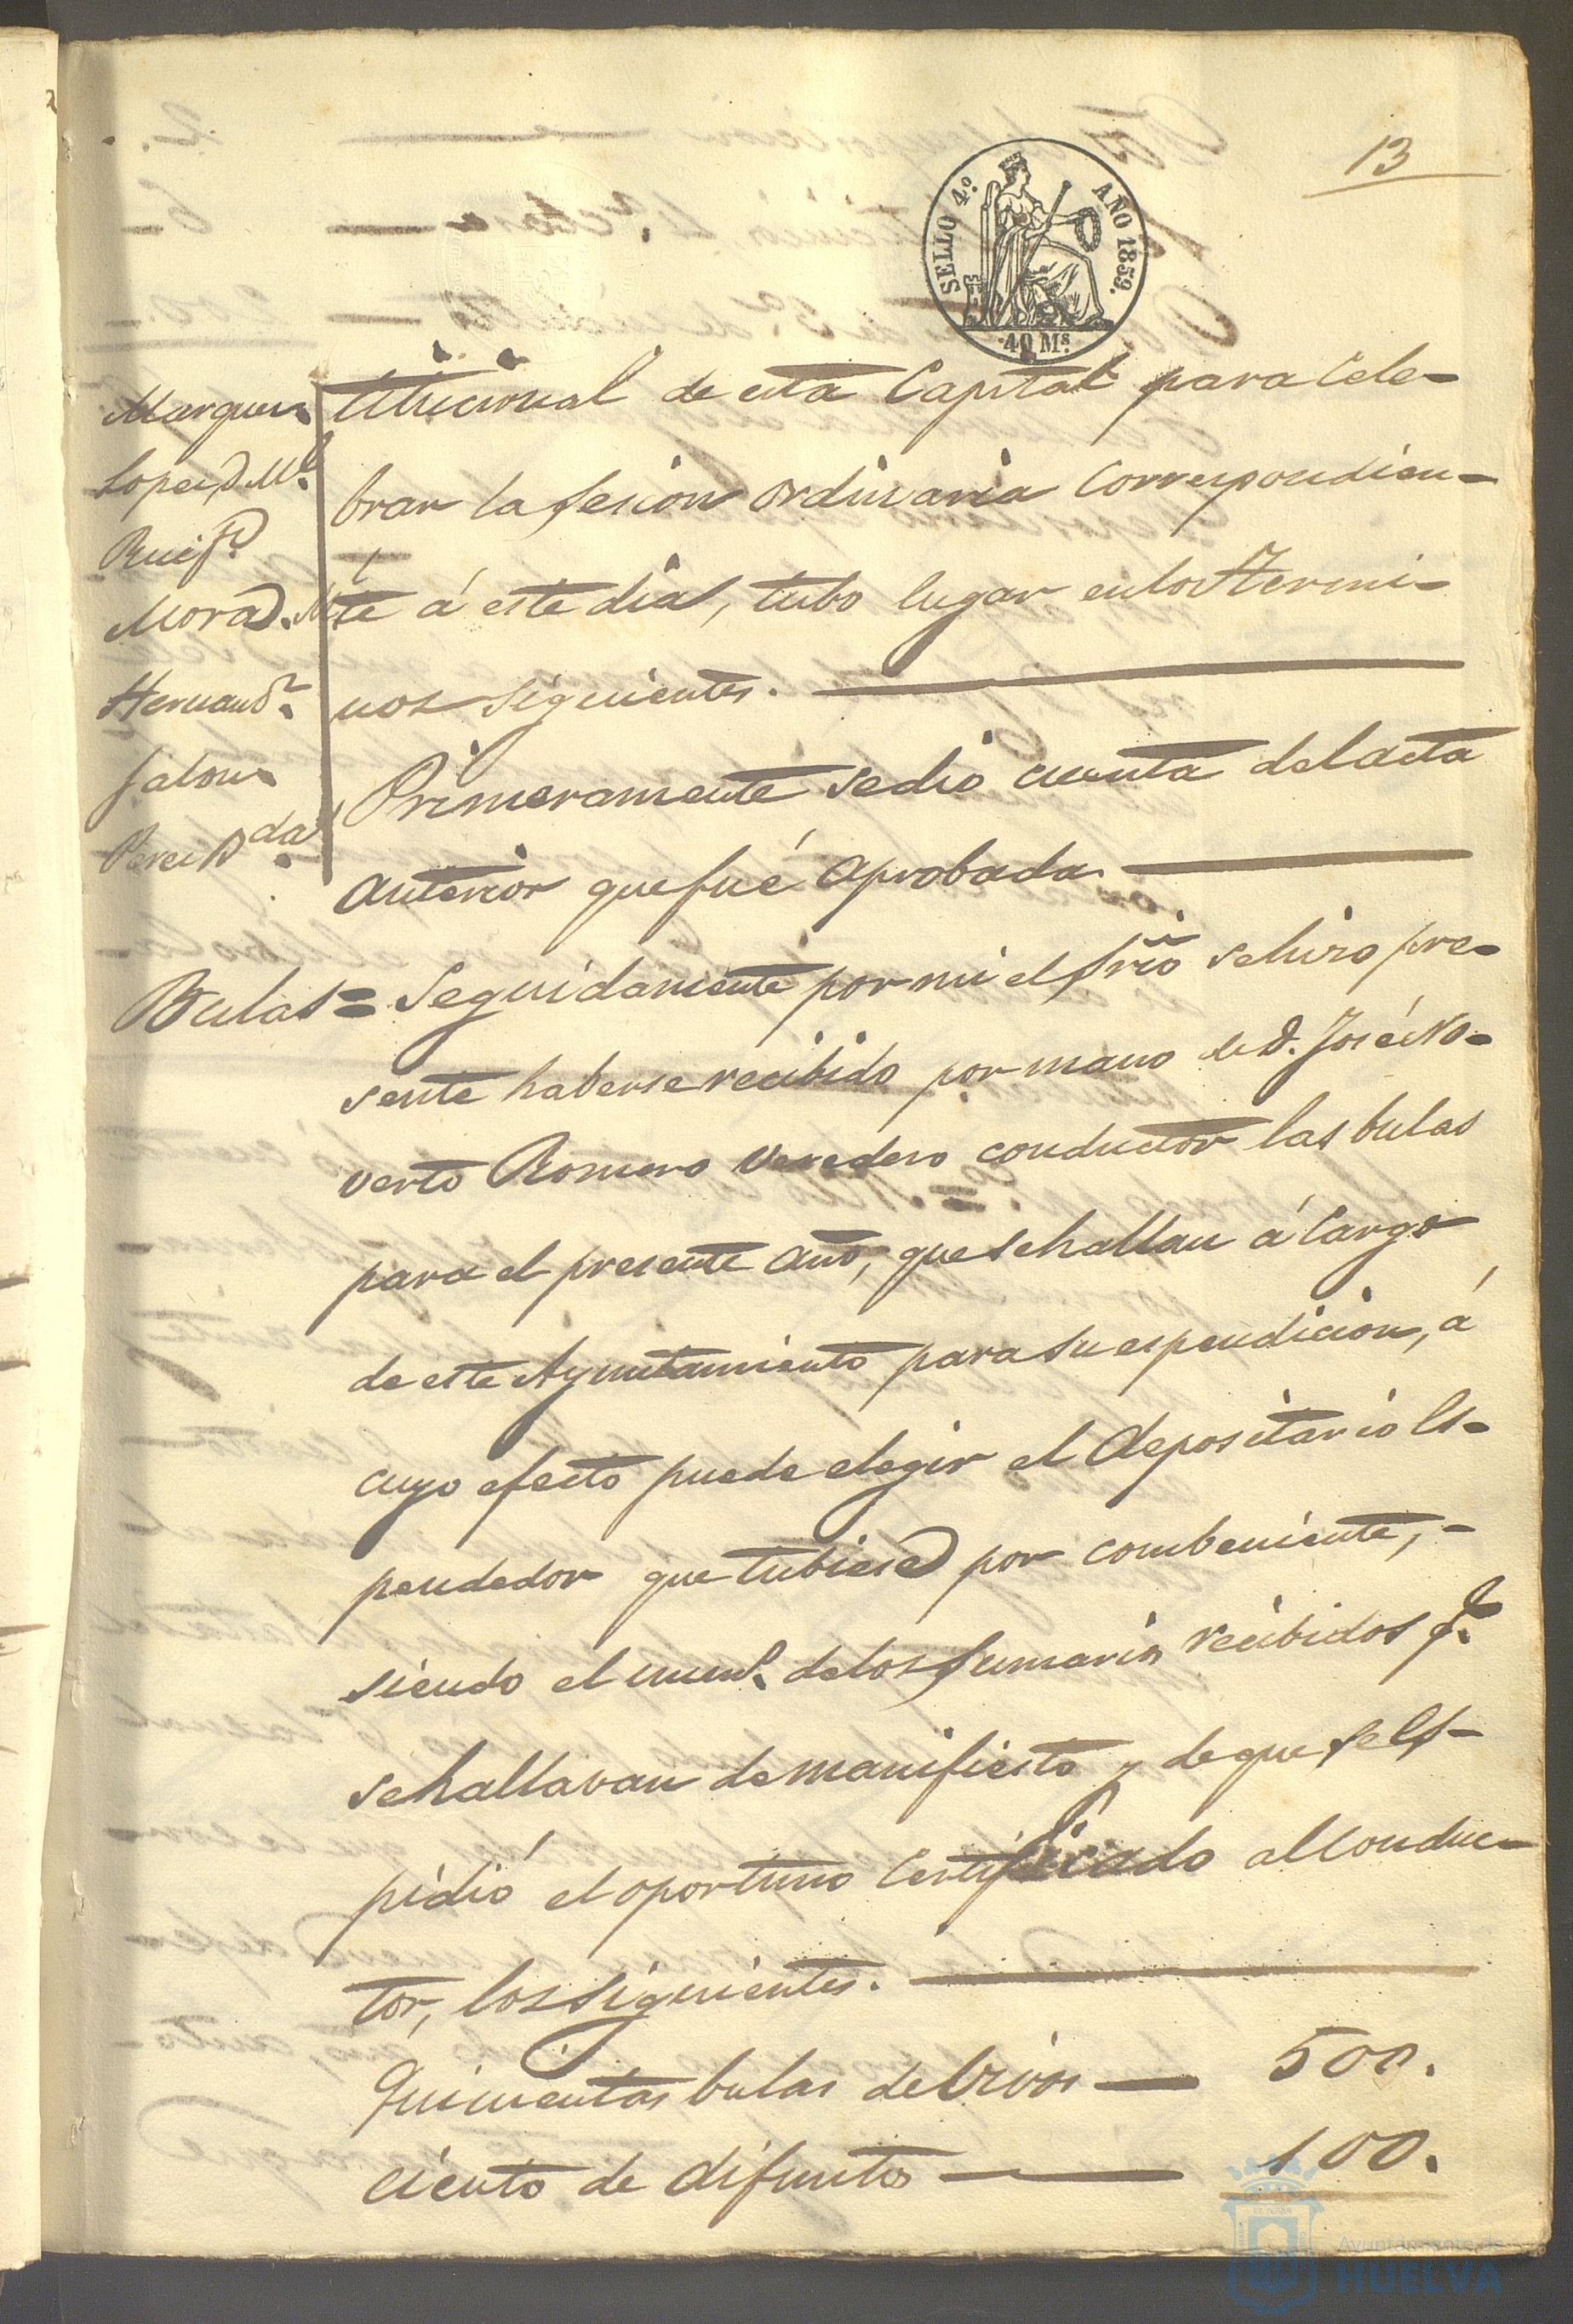 13
SELLO 4.º AÑO 1859.
40 Ms.
Marquez
Lopez D. Ml.
Ruiz
Mora D.
Hernandz.
Jalon
Perez
titucional de esta Capital para cele-
brar la sesion ordinaria correspondien-
te á este dia, tubo lugar en los termi-
nos siguientes.
Primeramente se dio cuenta del acta
anterior que fué aprobada
Bulas = Seguidamente por mi el Srio se hizo pre-
sente haberse recibido por mano de D. José No-
verto Romero Veredero conductor las bulas
para el presente año, que se hallan á cargo
de este Ayuntamiento para su espendicion, á
cuyo efecto puede elegir el depositario es-
pendedor que tubiese por combeniente, -
siendo el numo. de los sumarios recibidos q.e
se hallavan de manifiesto y de que se es-
pidió el oportuno certificado al conduc-
tor, los siguientes.
Quinientas bulas de vivos — 500.
ciento de difuntos — 100.
Ayuntamiento de
HUELVA